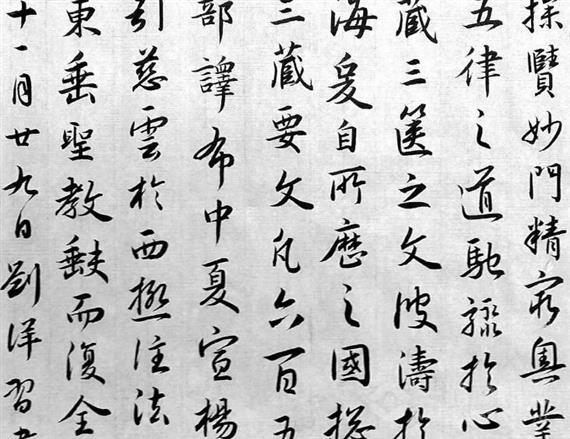 探賾妙門精窮奧業
五律之道馳驟於心
藏三篋之文波濤於
海爰自所歷之國總
三藏要文凡六百五
部譯布中夏宣楊
引慈雲於西極注法
東垂聖教缺而復全
十一月廿九日劉洋習書